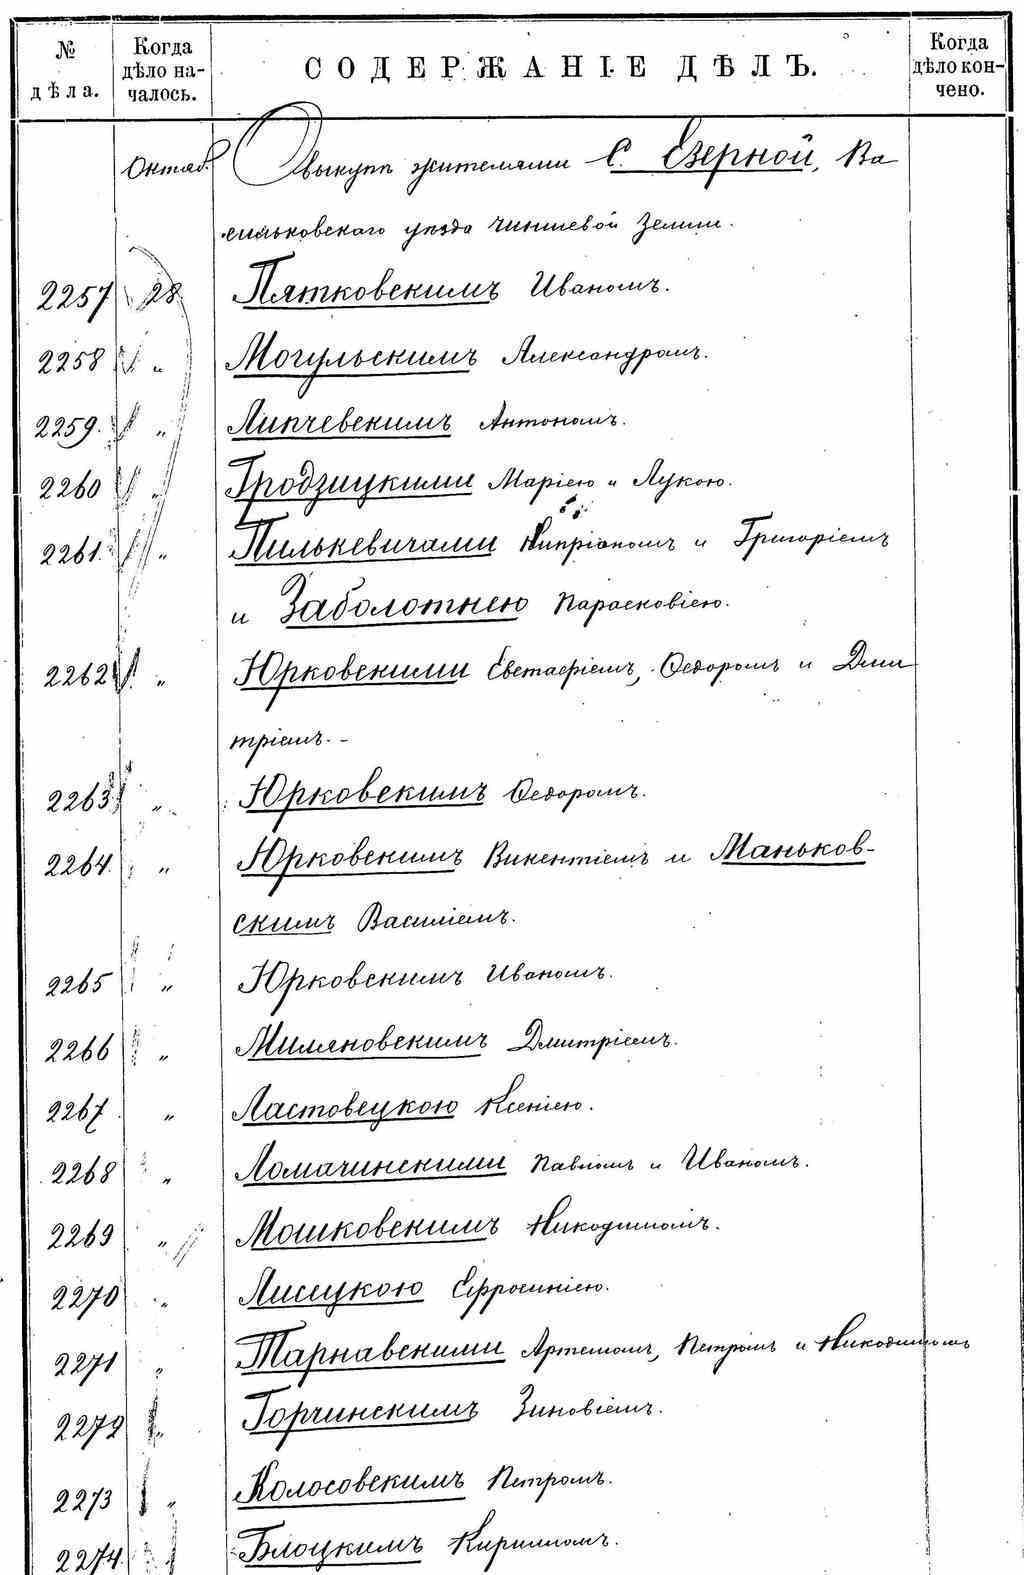 № дѣла.
Когда дѣло началось.
СОДЕРЖАНІЕ ДѢЛЪ.
Когда дѣло кончено.
Октяб. О выкупѣ жителями С. Езерной, Ва
сильковскаго уѣзда чиншевой земли.
2257 28 Пятковскимъ Иваномъ.
2258 „ Могульскимъ Александромъ.
2259. „ Липчевскимъ Антономъ.
2260 „ Гродзицкими Маріею и Лукою.
2261. „ Пилькевичами Кипріаномъ и Григоріемъ
и Заболотнею Парасковіею.
2262 „ Юрковскими Евстафіемъ, Ѳедоромъ и Дми
тріемъ. -
2263 „ Юрковскимъ Ѳедоромъ.
2264. „ Юрковскимъ Викентіемъ и Маньков-
скимъ Василіемъ.
2265 „ Юрковскимъ Иваномъ.
2266 „ Миляновскимъ Дмитріемъ.
2267 „ Ластовецкою Ксеніею.
2268 „ Ломачинскими Павломъ и Иваномъ.
2269 „ Мошковскимъ Никодимомъ.
2270 „ Лисецкою Ефросиніею.
2271 „ Тарнавскими Артемомъ, Петромъ и Никодимомъ
2272 „ Горчинскимъ Зиновіемъ.
2273 „ Колосовскимъ Петромъ.
2274. Блоцкимъ Кириломъ.